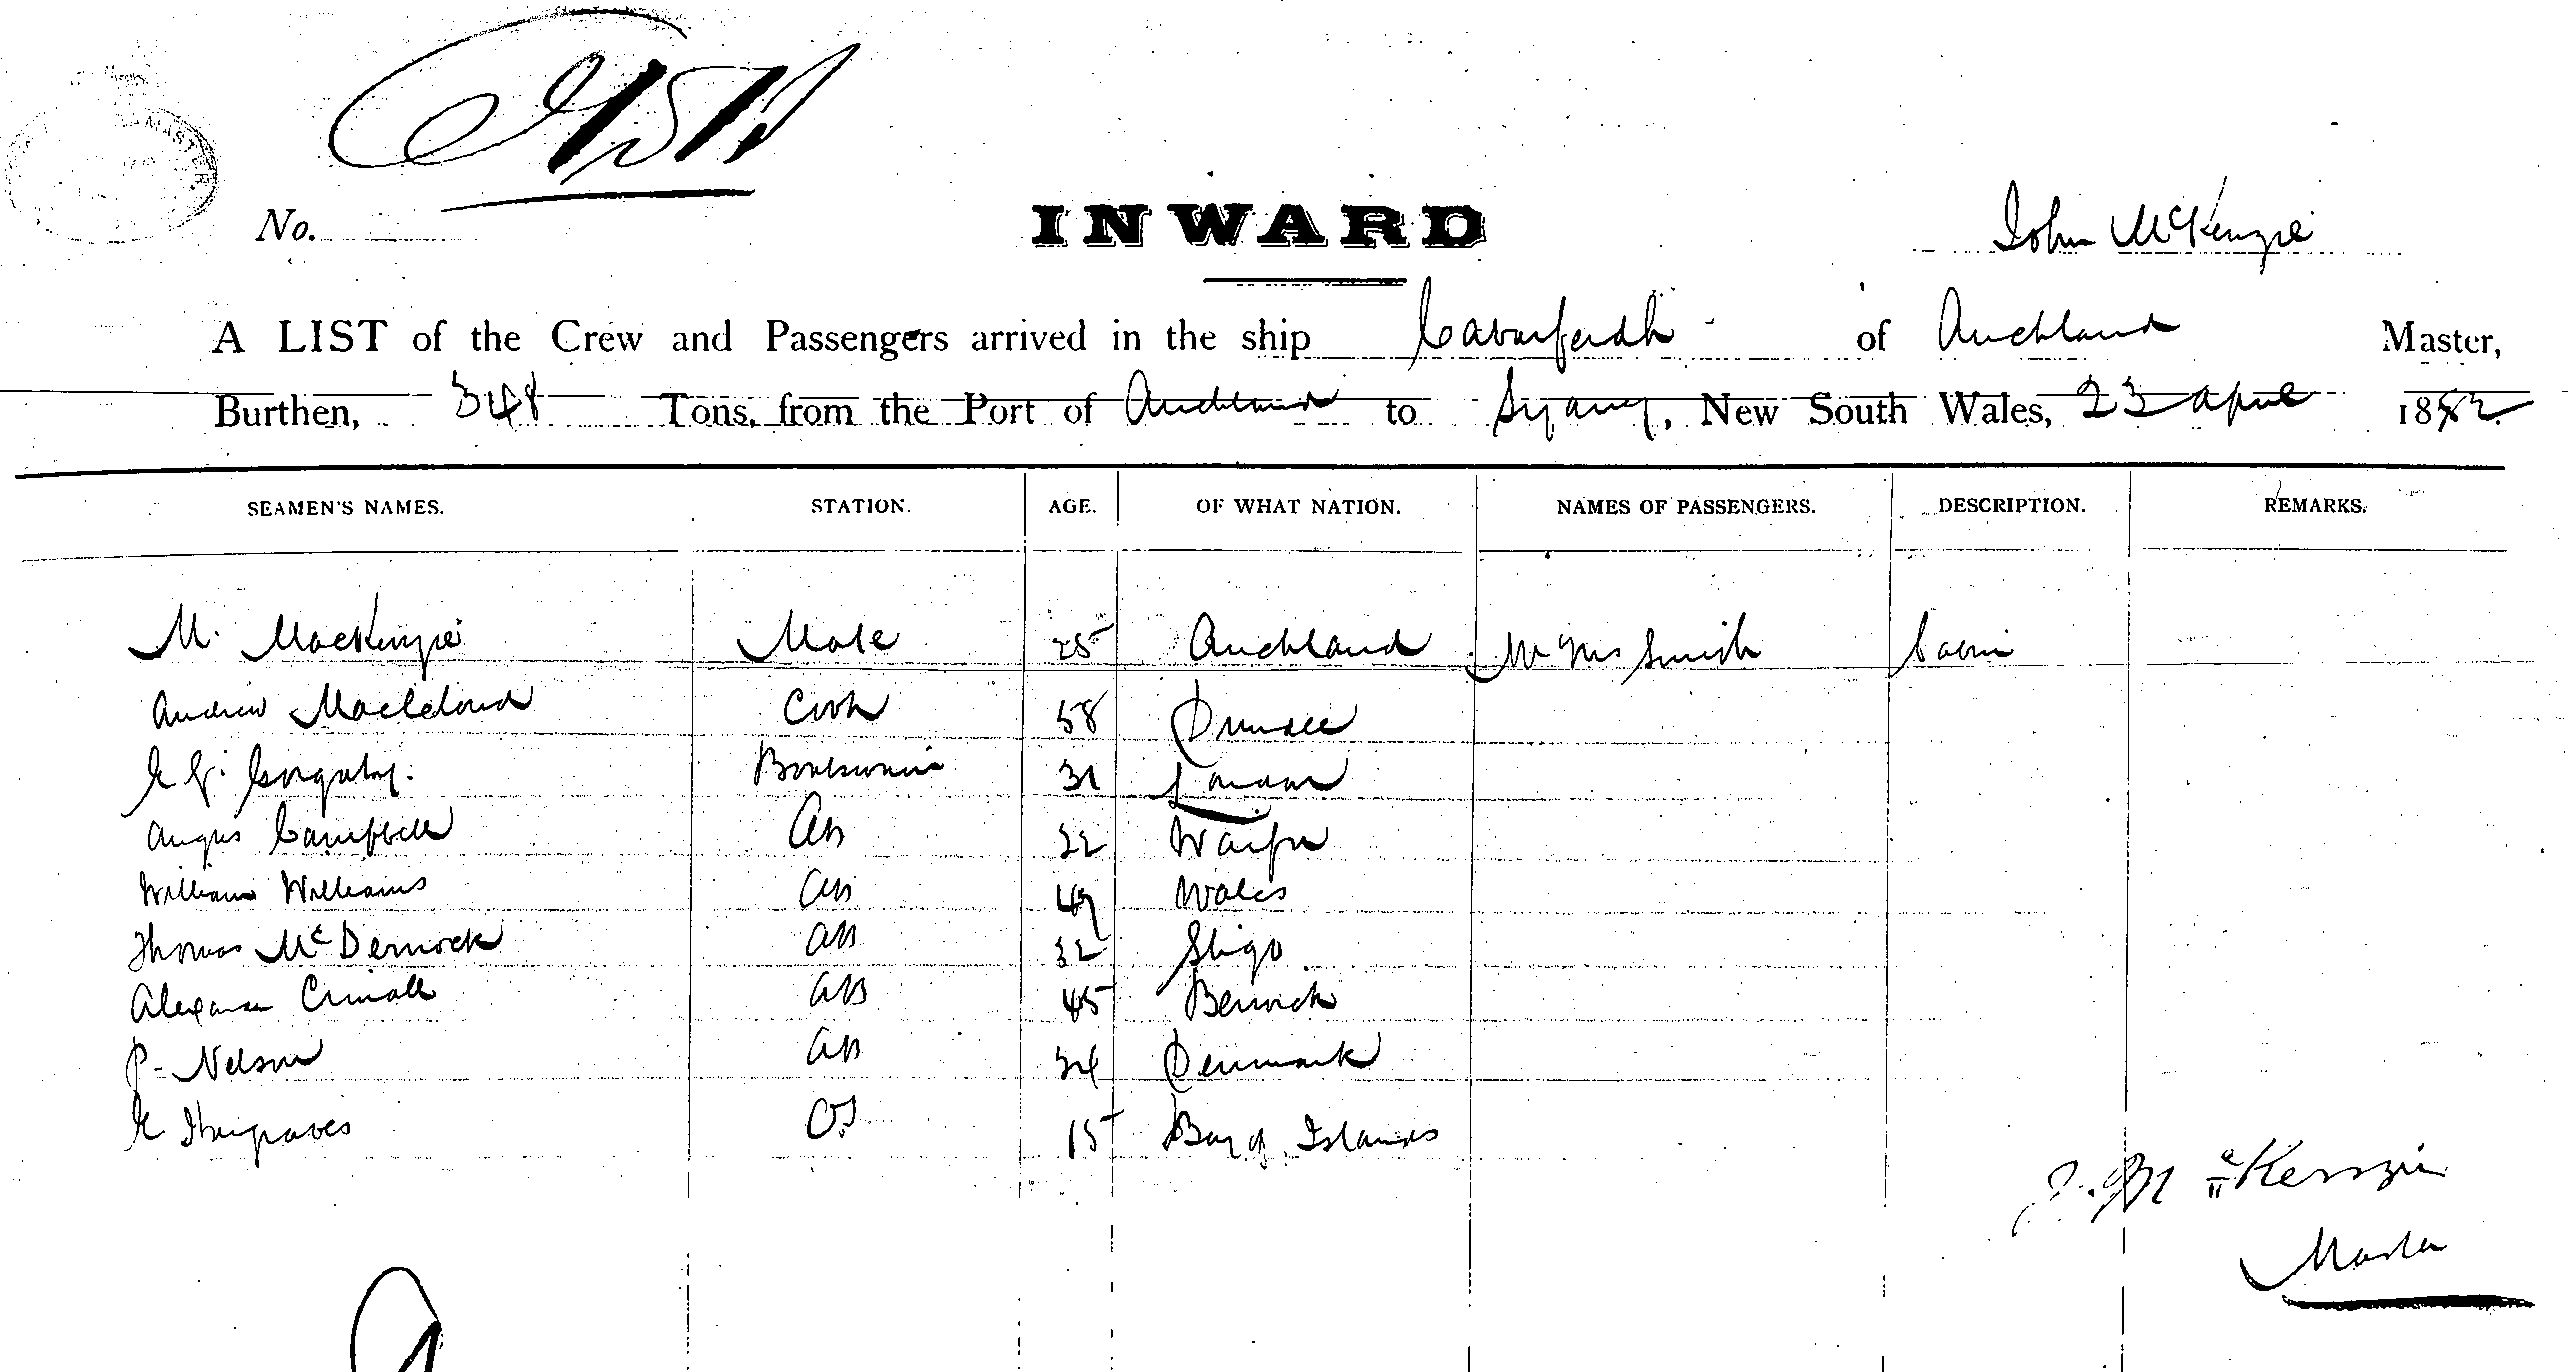 No.
INWARD
John McKenzie
A LIST of the Crew and Passengers arrived in the ship of Auckland Master,
Burthen, 348 Tons, from the Port of Auckland to Sydney, New South Wales, 23 April 1882
SEAMEN'S NAMES. STATION. AGE. OF WHAT NATION. NAMES OF PASSENGERS. DESCRIPTION. REMARKS.
M. MacKenzie Mate 25 Auckland Smith
Andrew Cook 58 Dundee
Boatswain 31 London
Angus Campbell AB 32 Waipu
William Williams AB 49 Wales
Thomas McDermock AB 32 Sligo
AB 45 Berwick
P- Nelson AB 34 Denmark
OS 15 Bay of Islands
J. McKenzie
Master